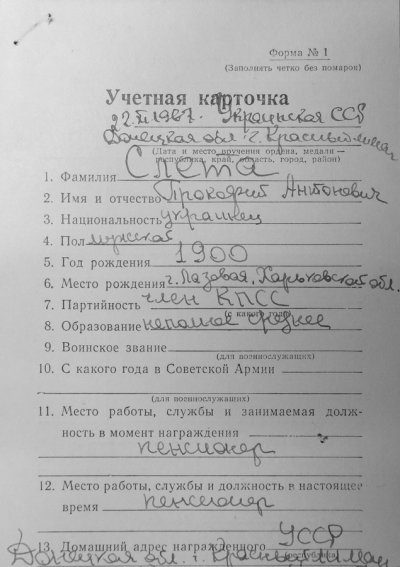 Форма № 1
(Заполнять четко без помарок)
Учетная карточка
22.VI.1967. Украинская ССР
Донецкая обл. г. Красный-Лиман
(Дата и место вручения ордена, медали —
республика, край, область, город, район)
1. Фамилия Слета
2. Имя и отчество Прокофий Антонович
3. Национальность украинец
4. Пол мужской
5. Год рождения 1900
6. Место рождения г. Лазовая, Харьковской обл.
7. Партийность член КПСС
(с какого года)
8. Образование неполное среднее
9. Воинское звание
(для военнослужащих)
10. С какого года в Советской Армии
(для военнослужащих)
11. Место работы, службы и занимаемая долж-
ность в момент награждения
пенсионер
12. Место работы, службы и должность в настоящее
время пенсионер
13. Домашний адрес награжденного УССР
(республика,
Донецкая обл. г. Красный Лиман